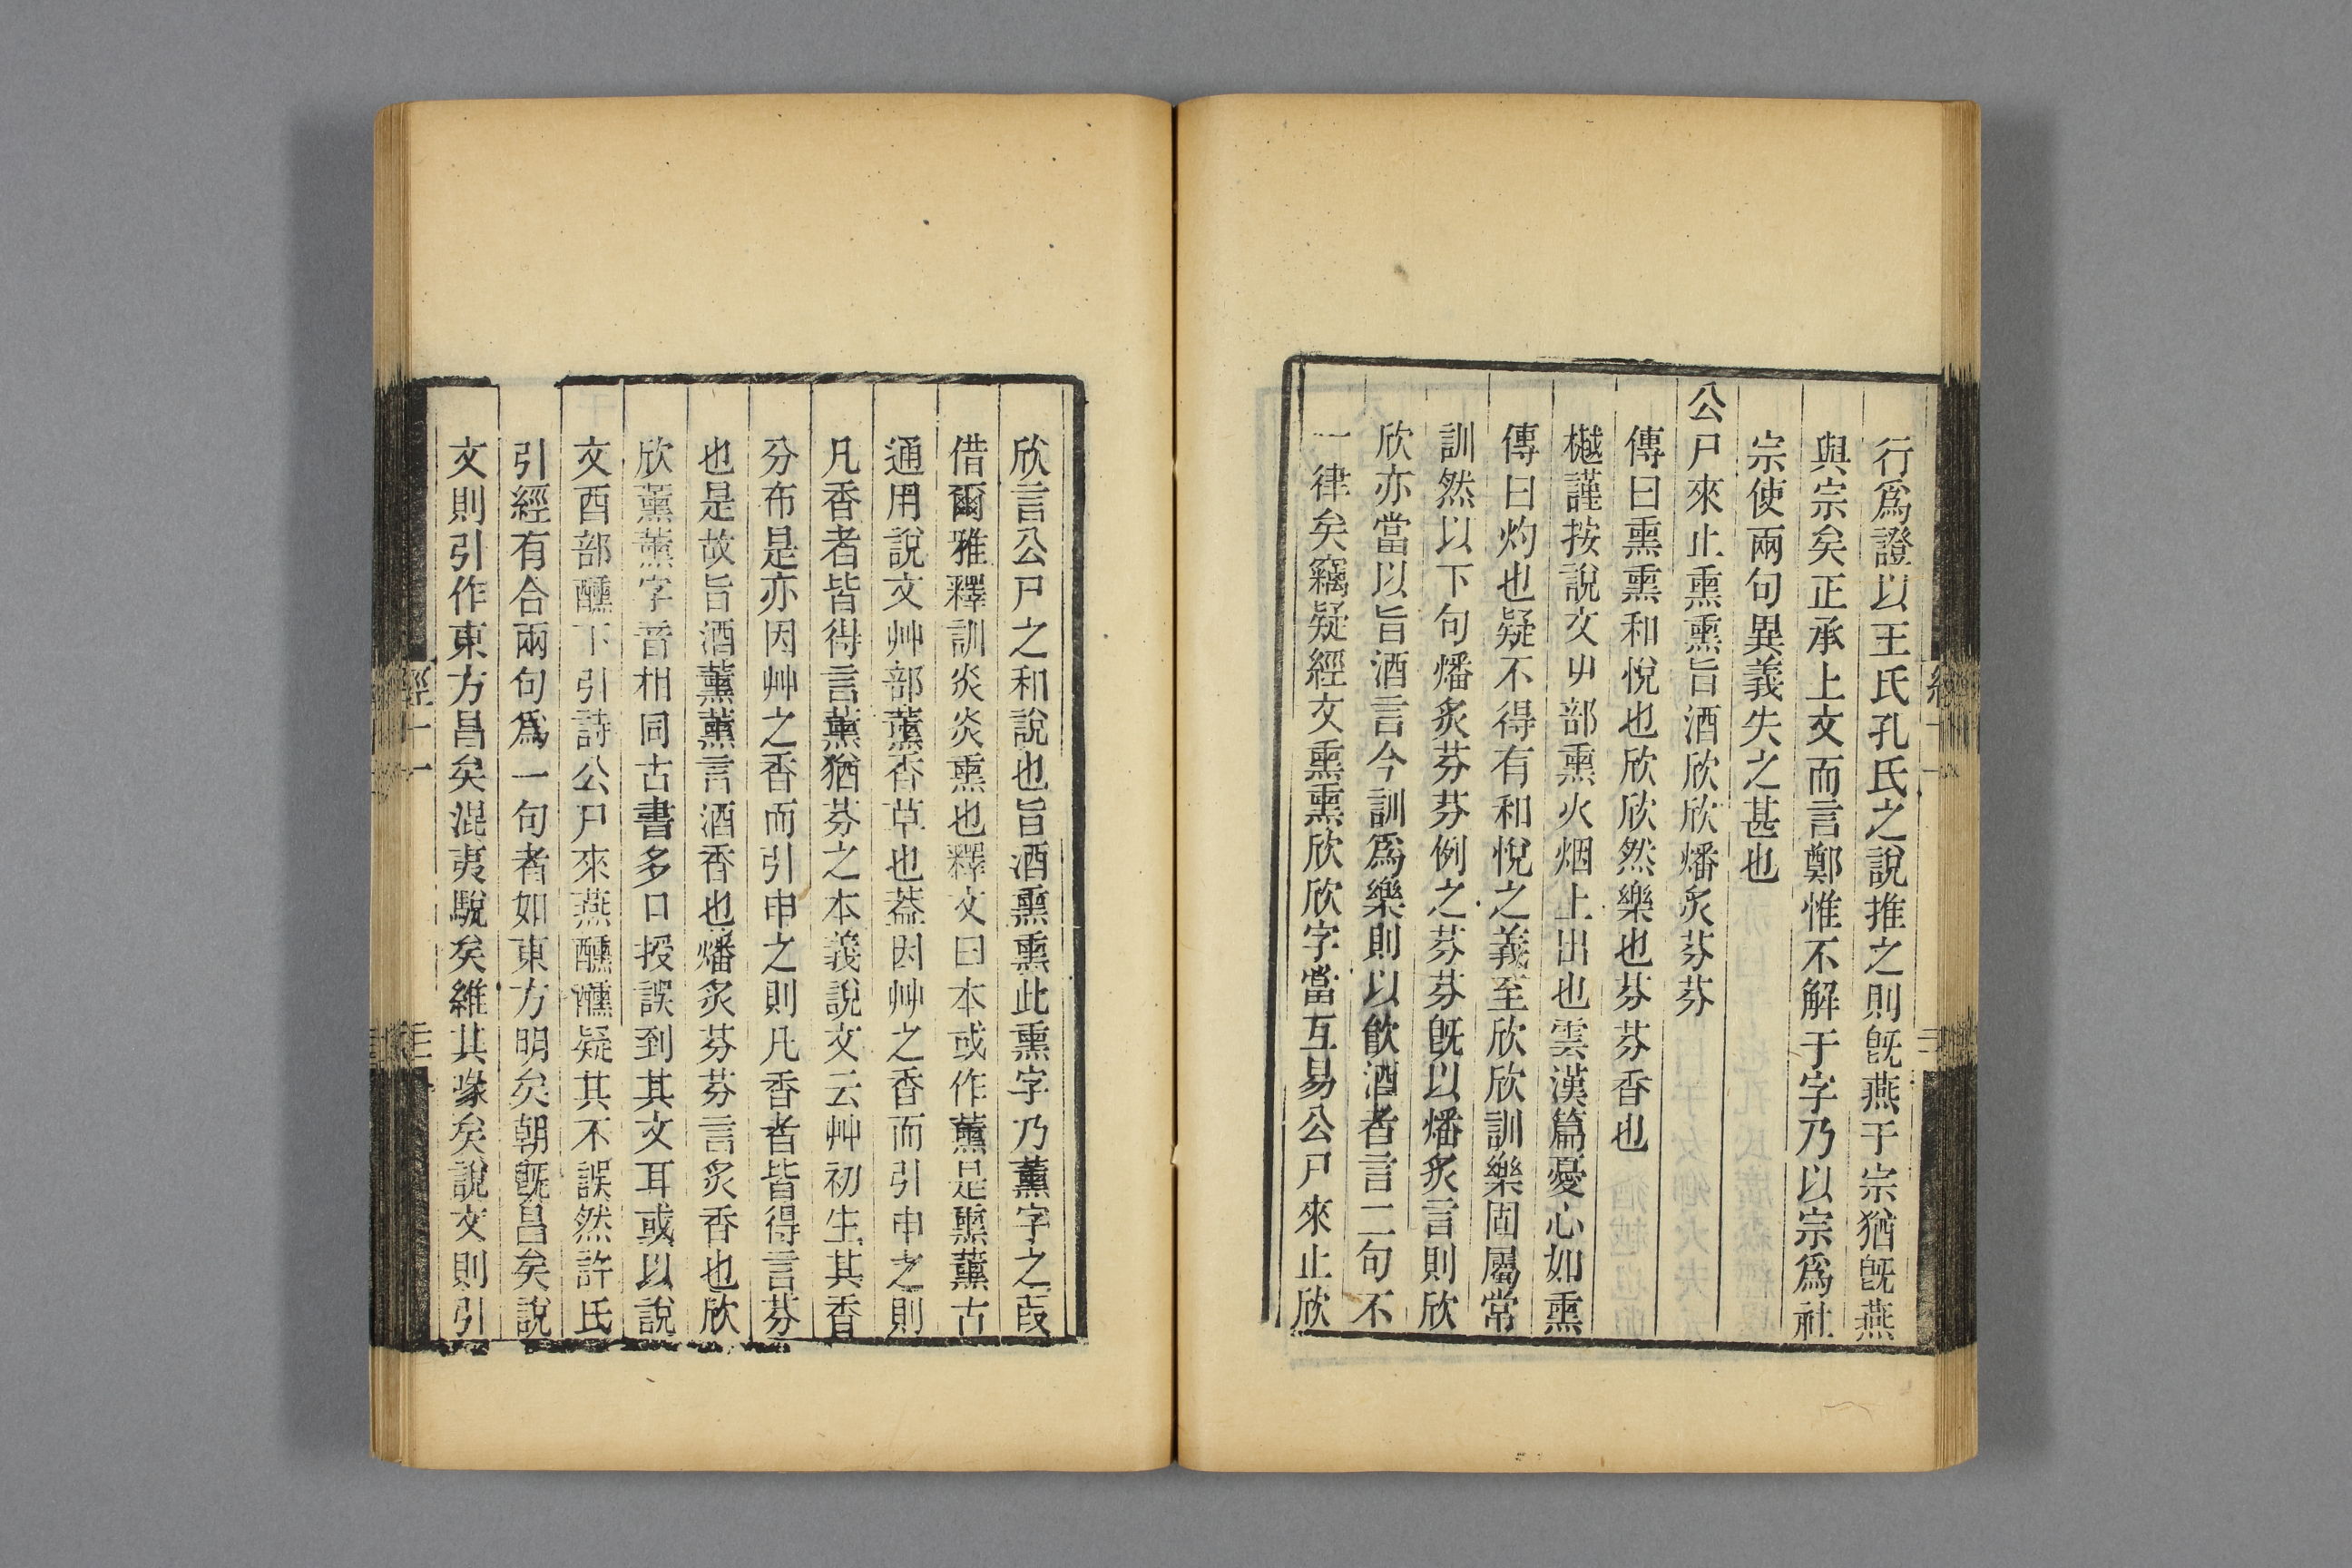 行爲證以王氏孔氏之說推之則旣燕于宗猶旣燕
與宗矣正承上文而言鄭惟不解于字乃以宗爲社
宗使兩句異義失之甚也
公尸來止熏熏旨酒欣欣燔炙芬芬
傳曰熏熏和悅也欣欣然樂也芬芬香也
樾謹按說文屮部熏火烟上出也雲漢篇憂心如熏
傳曰灼也疑不得有和悅之義至欣欣訓樂固屬常
訓然以下句燔炙芬芬例之芬芬旣以燔炙言則欣
欣亦當以旨酒言今訓爲樂則以飮酒者言二句不
一律矣竊疑經文熏熏欣欣字當互易公尸來止欣
欣言公尸之和說也旨酒熏熏此熏字乃薰字之叚
借爾雅釋訓炎炎熏也釋文曰本或作薰是熏薰古
通用說文艸部薰香草也葢因艸之香而引申之則
凡香者皆得言薰猶芬之本義說文云艸初生其香
分布是亦因艸之香而引申之則凡香者皆得言芬
也是故旨酒薰薰言酒香也燔炙芬芬言炙香也欣
欣薰薰字音相同古書多口授誤到其文耳或以說
文酉部醺下引詩公尸來燕醺醺疑其不誤然許氏
引經有合兩句爲一句者如東方明矣朝旣昌矣說
文則引作東方昌矣混夷駾矣維其喙矣說文則引
經十一